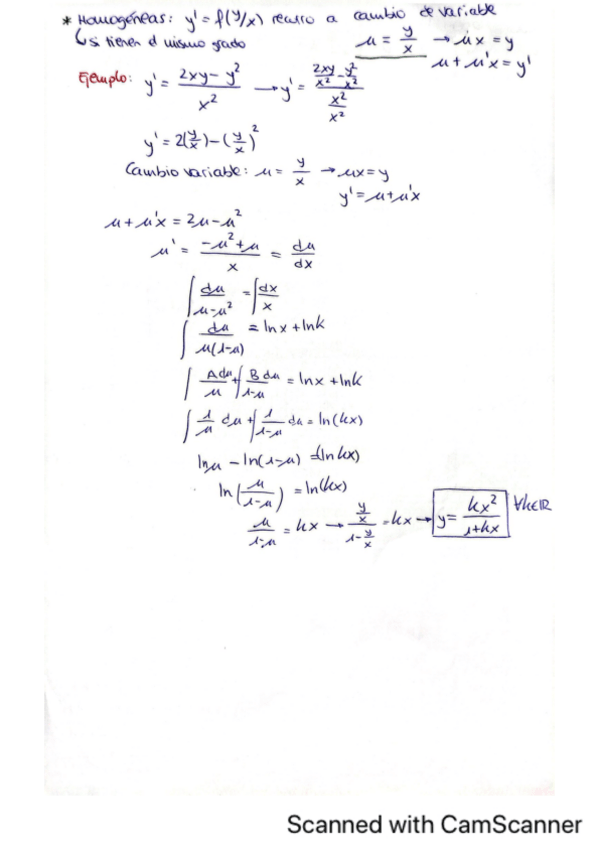 * Homogéneas: y' = f(y/x) recurro a cambio de variable
↳ si tienen el mismo grado
u = y/x → ux = y
u + u'x = y'
Ejemplo: y' = (2xy - y²)/x² → y' = (2xy/x² - y²/x²)/(x²/x²)
y' = 2(y/x) - (y/x)²
Cambio variable: u = y/x → ux = y
y' = u + u'x
u + u'x = 2u - u²
u' = (-u² + u)/x = du/dx
∫ du/(u - u²) = ∫ dx/x
∫ du/(u(1-u)) = lnx + lnk
∫ A du/u + ∫ B du/(1-u) = lnx + lnk
∫ 1/u du + ∫ 1/(1-u) du = ln(kx)
lnu - ln(1-u) = (ln kx)
ln(u/(1-u)) = ln(kx)
u/(1-u) = kx → (y/x)/(1 - y/x) = kx → y = kx²/(1+kx) ∀k∈ℝ
Scanned with CamScanner